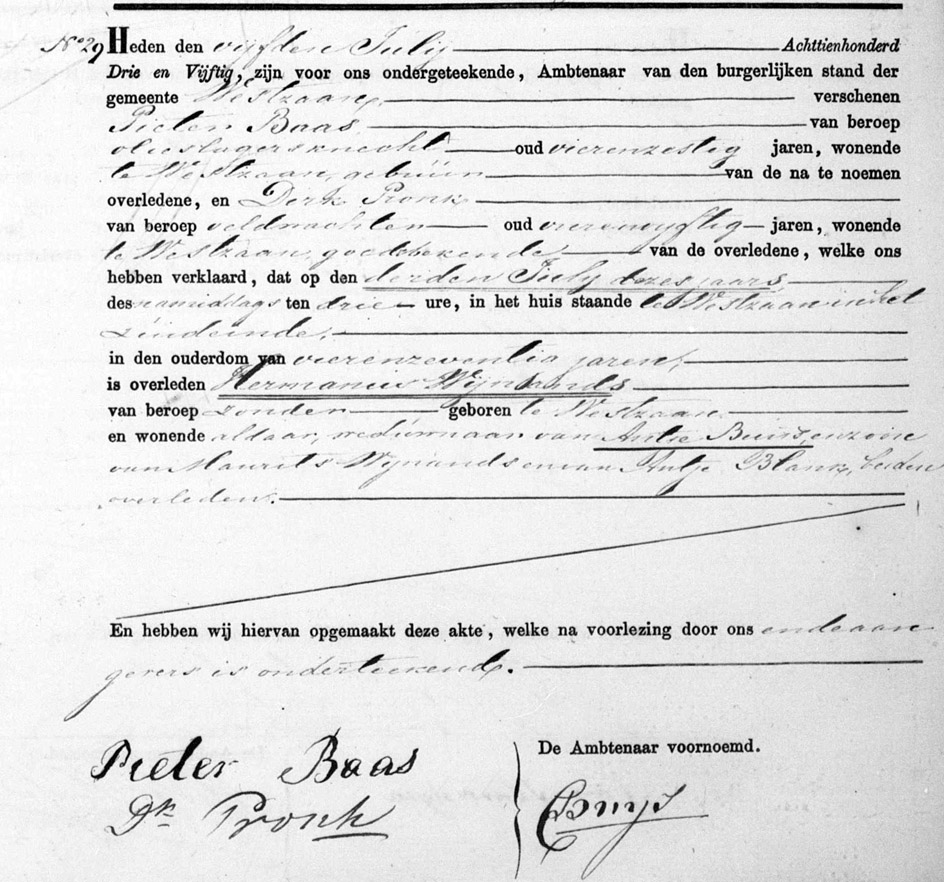 No 29 Heden den vijfden Julij Achttienhonderd
Drie en Vijftig, zijn voor ons ondergeteekende, Ambtenaar van den burgerlijken stand der
gemeente Westzaan, verschenen
Pieter Baas, van beroep
olieslagersknecht oud vierenzestig jaren, wonende
te Westzaan, gebuur van de na te noemen
overledene, en Dirk Pronk
van beroep veldwachter oud vierenvyftig jaren, wonende
te Westzaan, goede bekende van de overledene, welke ons
hebben verklaard, dat op den derden Julij dezes jaars
des namiddags ten drie ure, in het huis staande te Westzaan in het
Zuideinde,
in den ouderdom van vierenzeventig jaren,
is overleden Hermanus Wynands
van beroep zonder geboren te Westzaan
en wonende aldaar, weduwnaar van Antje Buis, en zoon
van Maurits Wynands en van Antje Blank, beiden
overleden.
En hebben wij hiervan opgemaakt deze akte, welke na voorlezing door ons en de aan
gevers is onderteekend.
De Ambtenaar voornoemd.
Pieter Baas
Dk Pronk